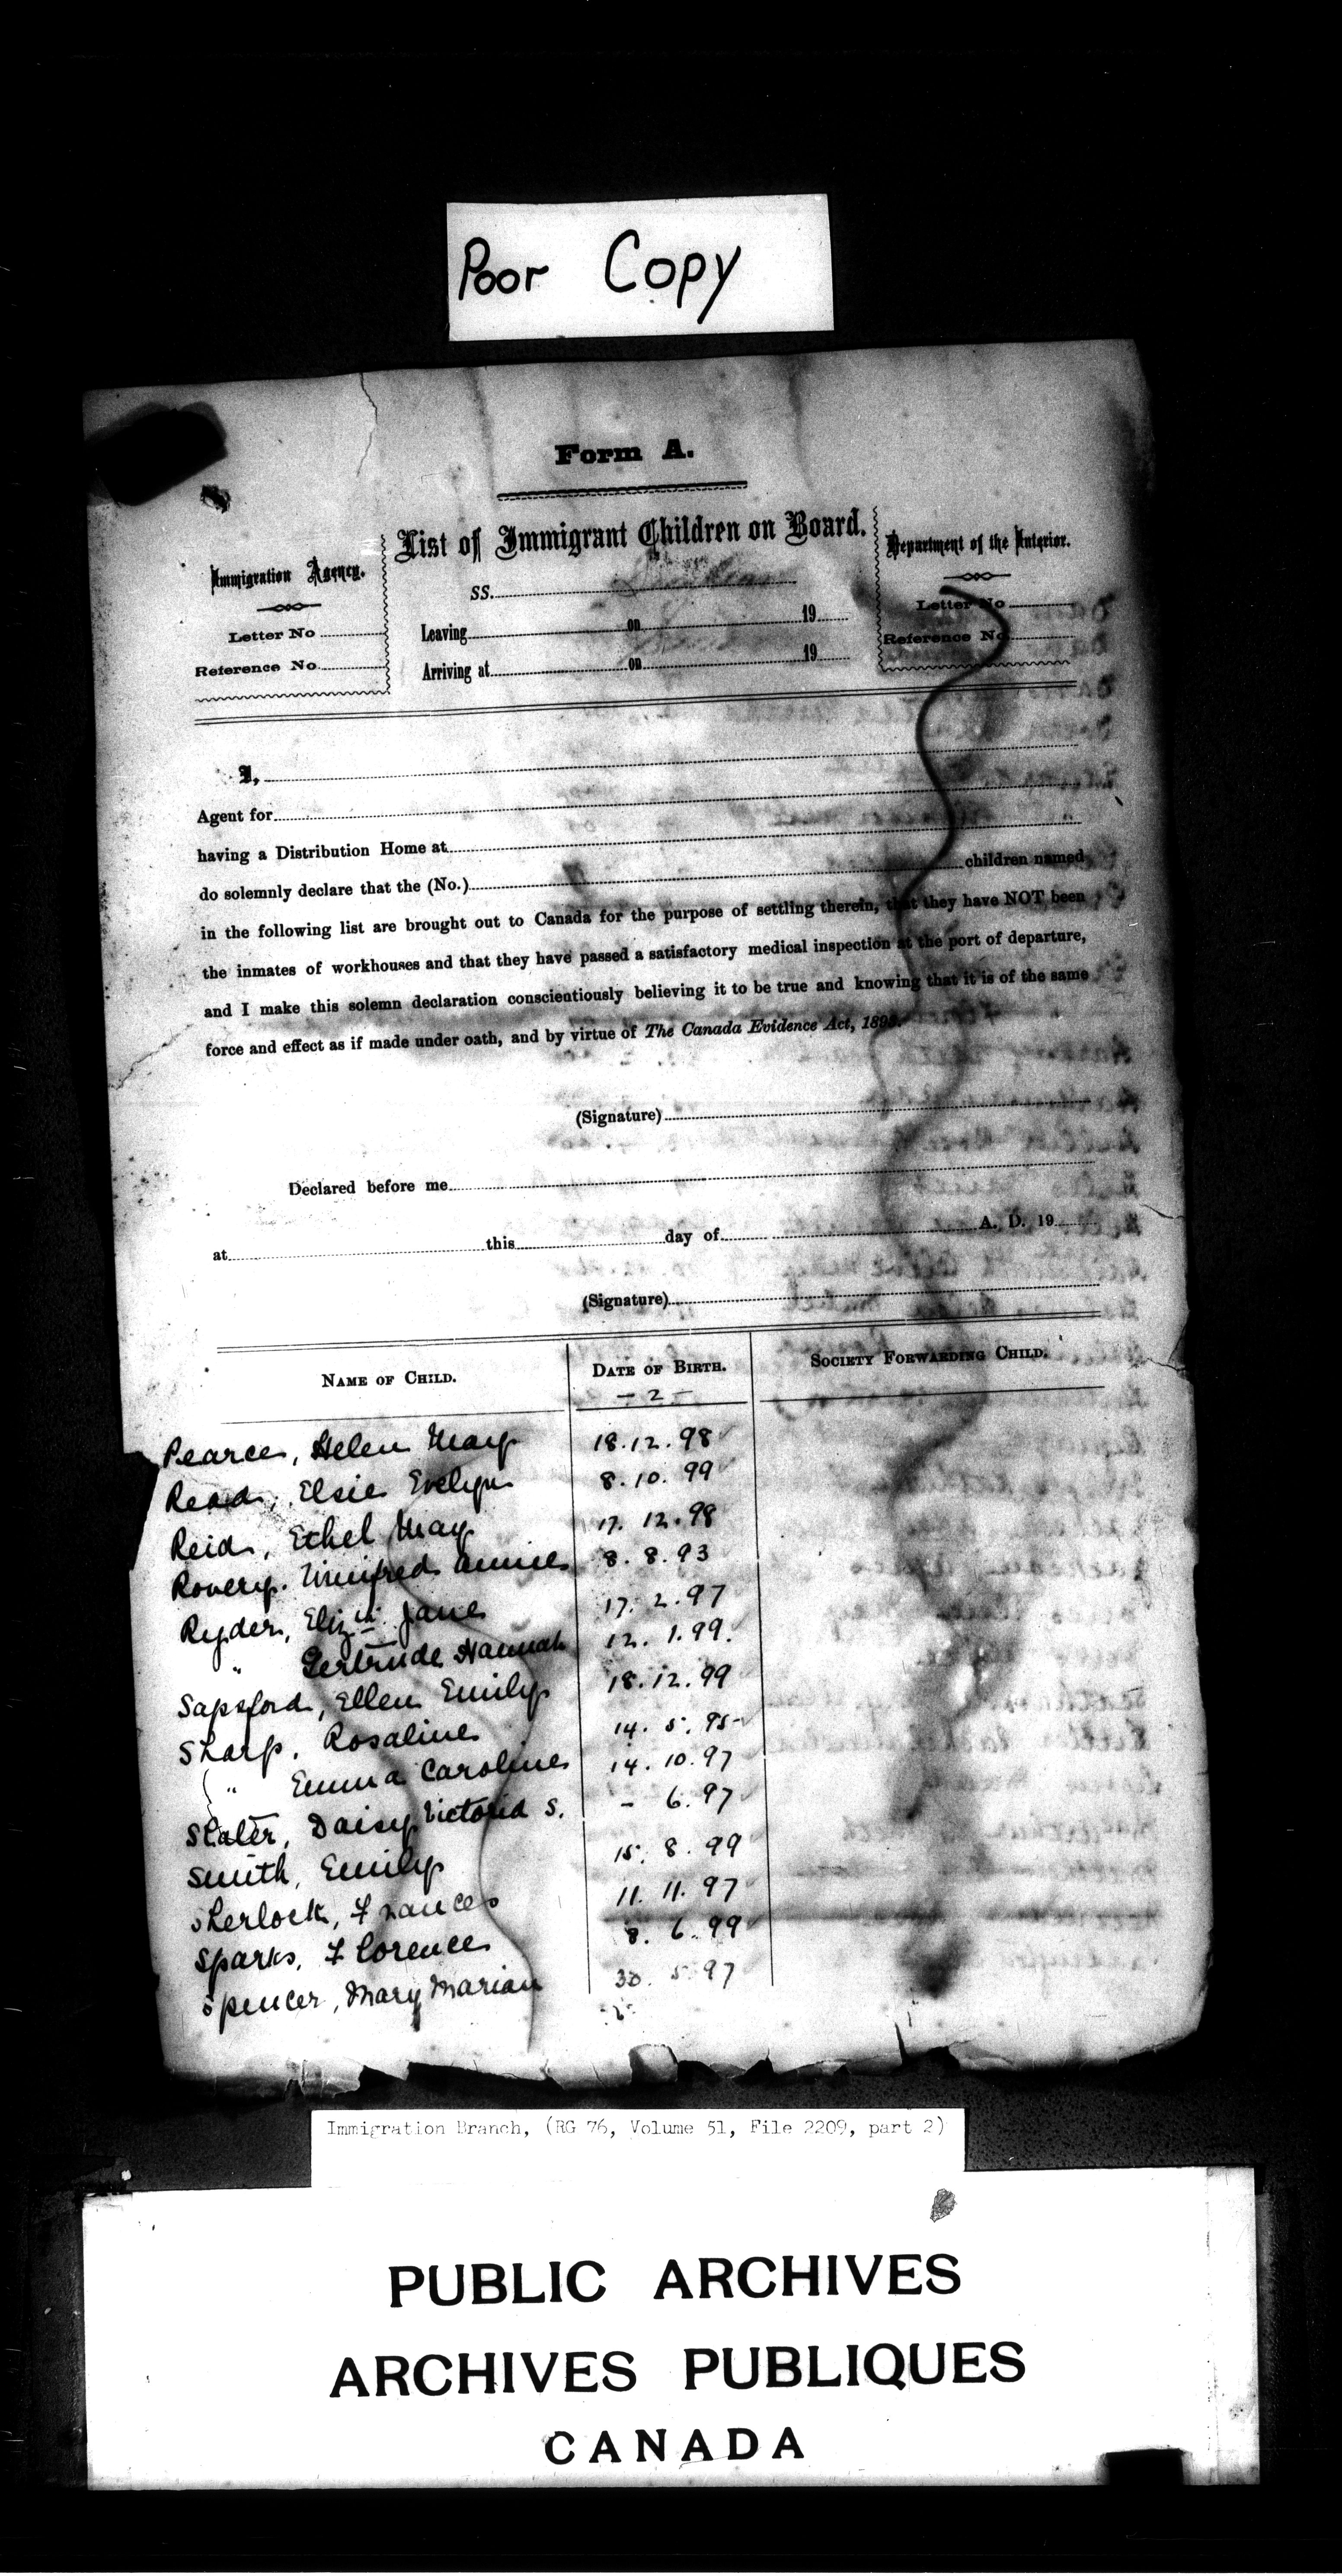 Poor Copy
Form A.
List of Immigrant Children on Board.
Immigration Agency.
Letter No
Reference No.
SS.
Leaving on 19
Arriving at on 19
Department of the Interior.
Letter No
Reference No.
I,
Agent for
having a Distribution Home at
do solemnly declare that the (No.) children named
in the following list are brought out to Canada for the purpose of settling therein, that they have NOT been
the inmates of workhouses and that they have passed a satisfactory medical inspection at the port of departure,
and I make this solemn declaration conscientiously believing it to be true and knowing that it is of the same
force and effect as if made under oath, and by virtue of The Canada Evidence Act, 1893.
(Signature)
Declared before me
at this day of A. D. 19
(Signature)
NAME OF CHILD. DATE OF BIRTH. SOCIETY FORWARDING CHILD.
- 2 -
Pearce, Helen May 18.12.98
Read, Elsie Evelyn 8.10.99
Reid, Ethel May 17.12.98
Rovery, Winifred Annie 8.8.93
Ryder, Elizth Jane 17.2.97
" Gertrude Hannah 12.1.99.
Sapsford, Ellen Emily 18.12.99
Sharp, Rosaline 14.5.95
" Emma Caroline 14.10.97
Slater, Daisy Victoria S. - 6.97
Smith, Emily 15.8.99
Sherlock, Frances 11.11.97
Sparks, Florence 8.6.99
Spencer, Mary Marian 30.5.97
Immigration Branch, (RG 76, Volume 51, File 2209, part 2)
PUBLIC ARCHIVES
ARCHIVES PUBLIQUES
CANADA